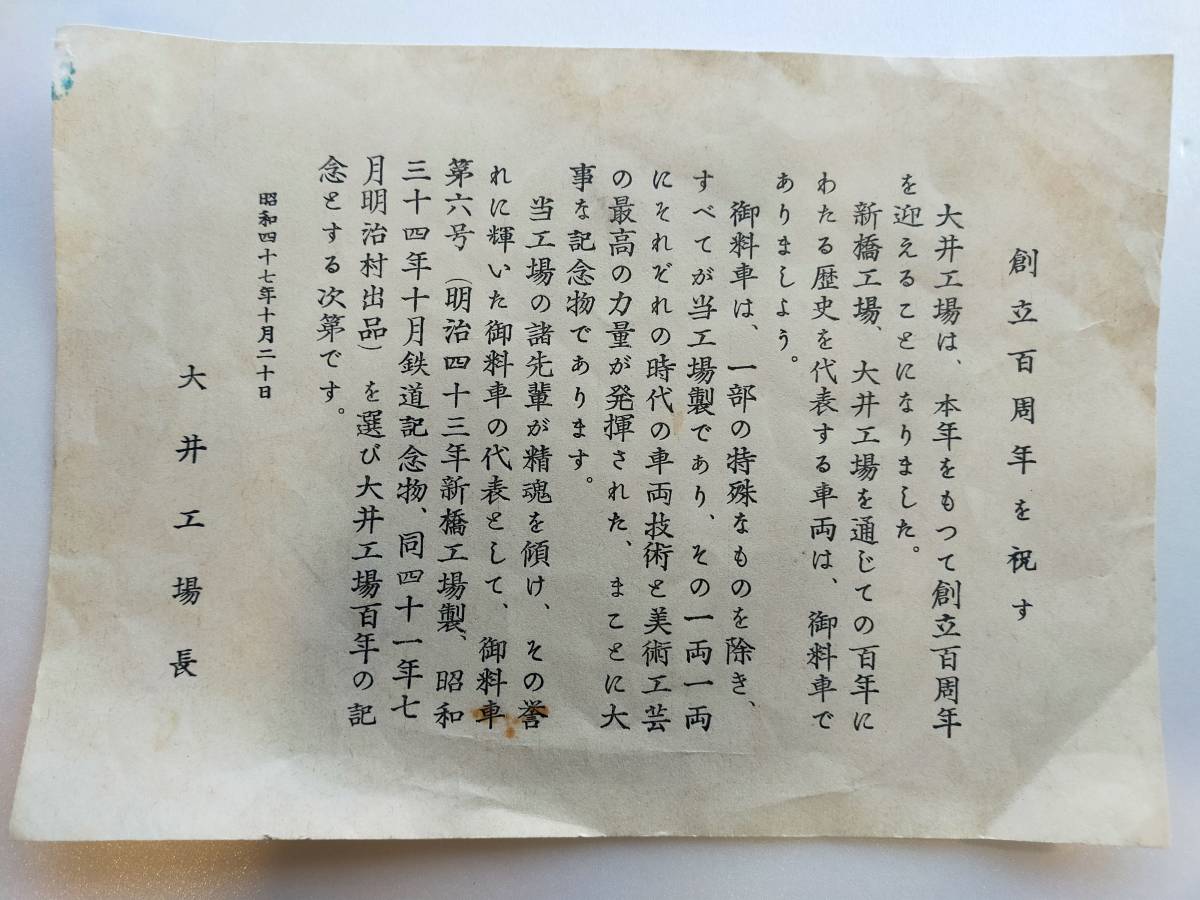 創立百周年を祝す
大井工場は、本年をもつて創立百周年
を迎えることになりました。
新橋工場、大井工場を通じての百年に
わたる歴史を代表する車両は、御料車で
ありましよう。
御料車は、一部の特殊なものを除き、
すべてが当工場製であり、その一両一両
にそれぞれの時代の車両技術と美術工芸
の最高の力量が発揮された、まことに大
事な記念物であります。
当工場の諸先輩が精魂を傾け、その誉
れに輝いた御料車の代表として、御料車
第六号（明治四十三年新橋工場製、昭和
三十四年十月鉄道記念物、同四十一年七
月明治村出品）を選び大井工場百年の記
念とする次第です。
昭和四十七年十月二十日
大井工場長